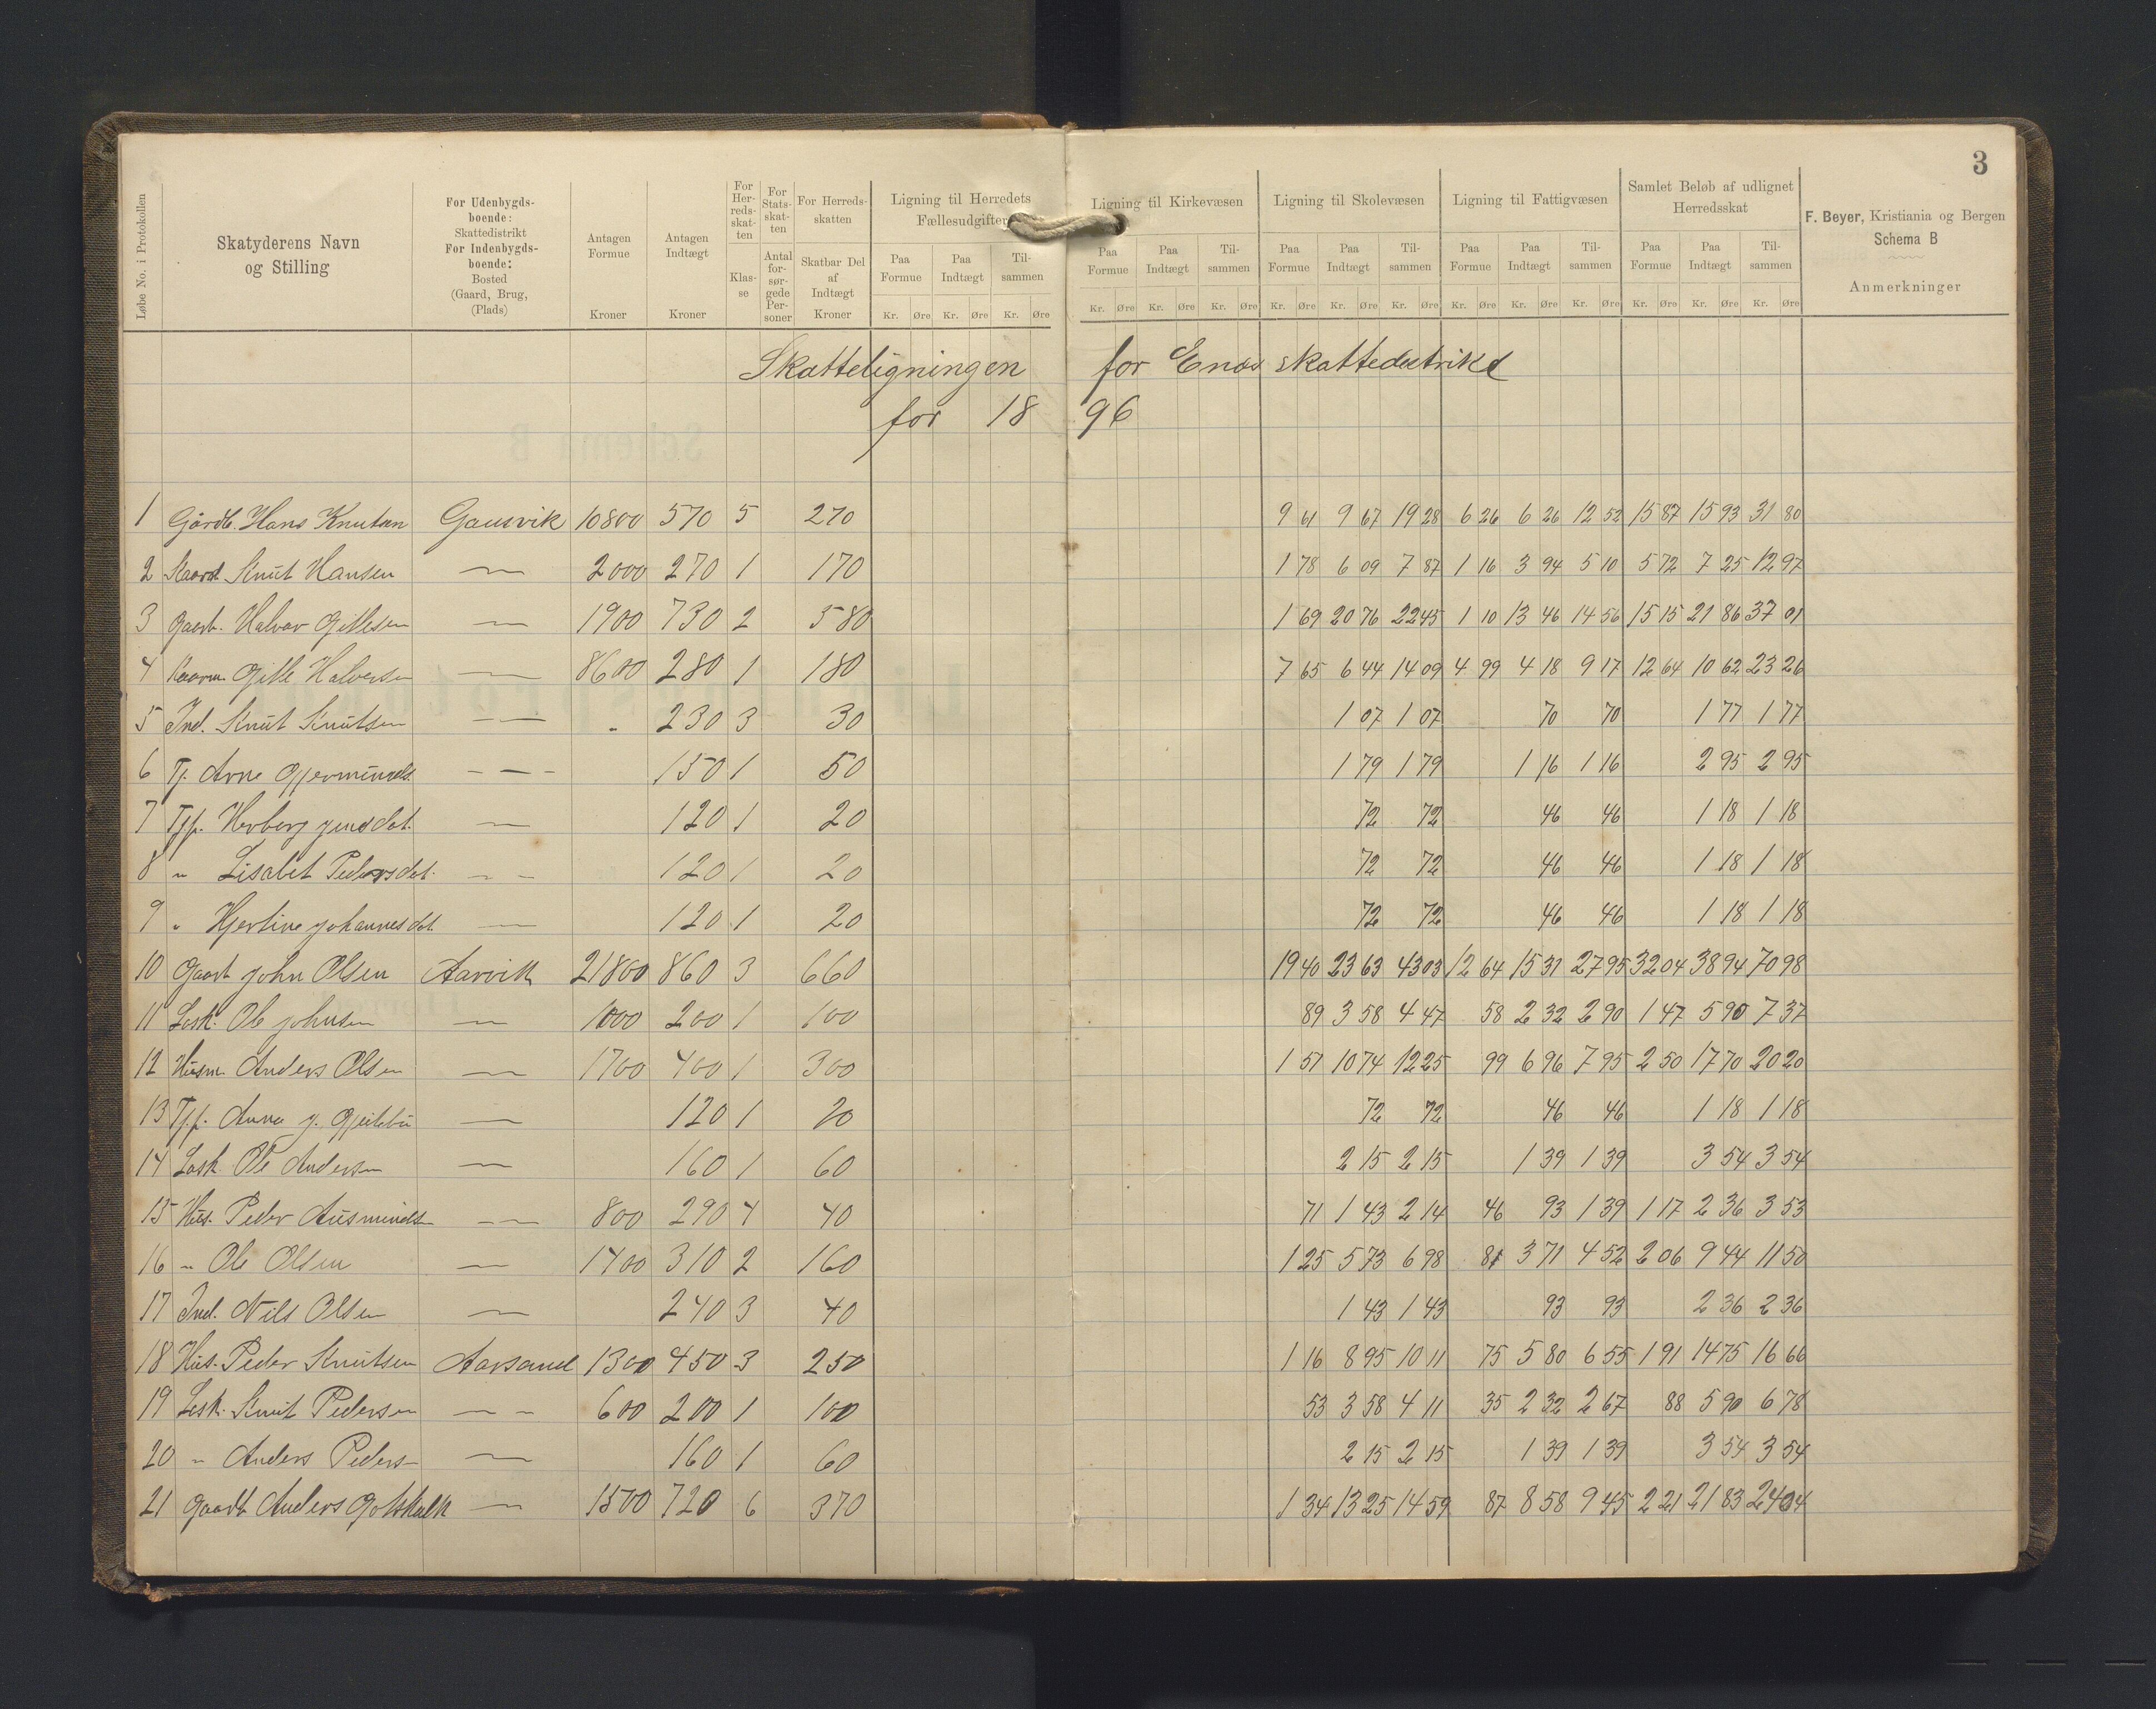 3
Løbe No. i Protokollen
Skatyderens Navn og Stilling
For Udenbygdsboende: Skattedistrikt For Indenbygdsboende: Bosted (Gaard, Brug, (Plads)
Antagen Formue Kroner
Antagen Indtægt Kroner
For Herredsskatten Klasse
For Statsskatten Antal forsørgede Personer
For Herredsskatten Skatbar Del af Indtægt Kroner
Ligning til Herredets Fællesudgifter Paa Formue Paa Indtægt Tilsammen Kr. Øre Kr. Øre Kr. Øre
Ligning til Kirkevæsen Paa Formue Paa Indtægt Tilsammen Kr. Øre Kr. Øre Kr. Øre
Ligning til Skolevæsen Paa Formue Paa Indtægt Tilsammen Kr. Øre Kr. Øre Kr. Øre
Ligning til Fattigvæsen Paa Formue Paa Indtægt Tilsammen Kr. Øre Kr. Øre Kr. Øre
Samlet Beløb af udlignet Herredsskat Paa Formue Paa Indtægt Tilsammen Kr. Øre Kr. Øre Kr. Øre
F. Beyer, Kristiania og Bergen
Schema B
Anmerkninger
Skatteligningen for skattedistrikt
for 18 96
1 Gårdb. Hans Knutsen Gausvik 10800 570 5 270 9 61 9 67 19 28 6 26 6 26 12 52 15 87 15 93 31 80
2 Knut Hansen — 2000 270 1 170 1 78 6 09 7 87 1 16 3 94 5 10 5 72 7 25 12 97
3 Gaarb. Halvor Gitlesen — 1900 730 2 580 1 69 20 76 22 45 1 10 13 46 14 56 15 15 21 86 37 01
4 Gitle Halvorsen — 8600 280 1 180 7 65 6 44 14 09 4 99 4 18 9 17 12 64 10 62 23 26
5 Ind. Knut Knutsen — — - 230 3 30 1 07 1 07 70 70 1 77 1 77
6 Tj. Arne Gjermunds. — — - 150 1 50 1 79 1 79 1 16 1 16 2 95 2 95
7 Tj.p. Herborg dat. — 120 1 20 72 72 46 46 1 18 1 18
8 " Lisabet Pedersdat. — — 120 1 20 72 72 46 46 1 18 1 18
9 " Hjertine Johannesdat — 120 1 20 72 72 46 46 1 18 1 18
10 Gaarb John Olsen Aarvik 21800 860 3 660 19 40 23 63 43 03 12 64 15 31 27 95 32 04 38 94 70 98
11 Losk. Ole Johnsen — 1000 200 1 100 89 3 58 4 47 58 2 32 2 90 1 47 5 90 7 37
12 Husm. Anders Olsen — 1700 400 1 300 1 51 10 74 12 25 99 6 96 7 95 2 50 17 70 20 20
13 Tj.p. Anna J. — 120 1 20 72 72 46 46 1 18 1 18
14 Losk. Ole Andersen — 160 1 60 2 15 2 15 1 39 1 39 3 54 3 54
15 Hus. Peder Ausmunds — — 800 290 4 40 71 1 43 2 14 46 93 1 39 1 17 2 36 3 53
16 " Ole Olsen — 1400 310 2 160 1 25 5 73 6 98 81 3 71 4 52 2 06 9 44 11 50
17 Ind. Nils Olsen — 240 3 40 1 43 1 43 93 93 2 36 2 36
18 Hus. Peder Knutsen Aarsand 1300 450 3 250 1 16 8 95 10 11 75 5 80 6 55 1 91 14 75 16 66
19 Losk. Knut Pedersen — — 600 200 1 100 53 3 58 4 11 35 2 32 2 67 88 5 90 6 78
20 " Anders Peders — 160 1 60 2 15 2 15 1 39 1 39 3 54 3 54
21 Gaardb Anders Gotskalk — 1500 720 6 370 1 34 13 25 14 59 87 8 58 9 45 2 21 21 83 24 04